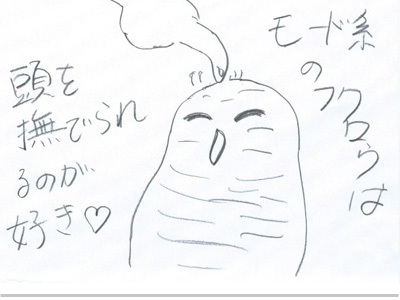 モード系
のフクロウは
頭を
撫でられ
るのが
好き♡